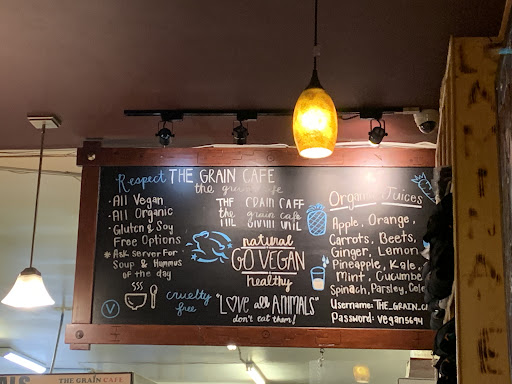 Respect THE GRAIN CAFE
the grain cafe
• All Vegan
• All Organic
• Gluten & Soy
Free Options
* Ask server for
Soup & Hummus
of the day
V
the grain cafe
natural
GO VEGAN
healthy
cruelty
free
"LOVE all ANIMALS"
don't eat them!
Juices
Apple, Orange,
Carrots, Beets,
Ginger, Lemon
Pineapple, Kale,
Mint, Cucumbe
Spinach, Parsley, Cele
Username: THE_GRAIN_C
Password: vegan5694
THE GRAIN CAFE